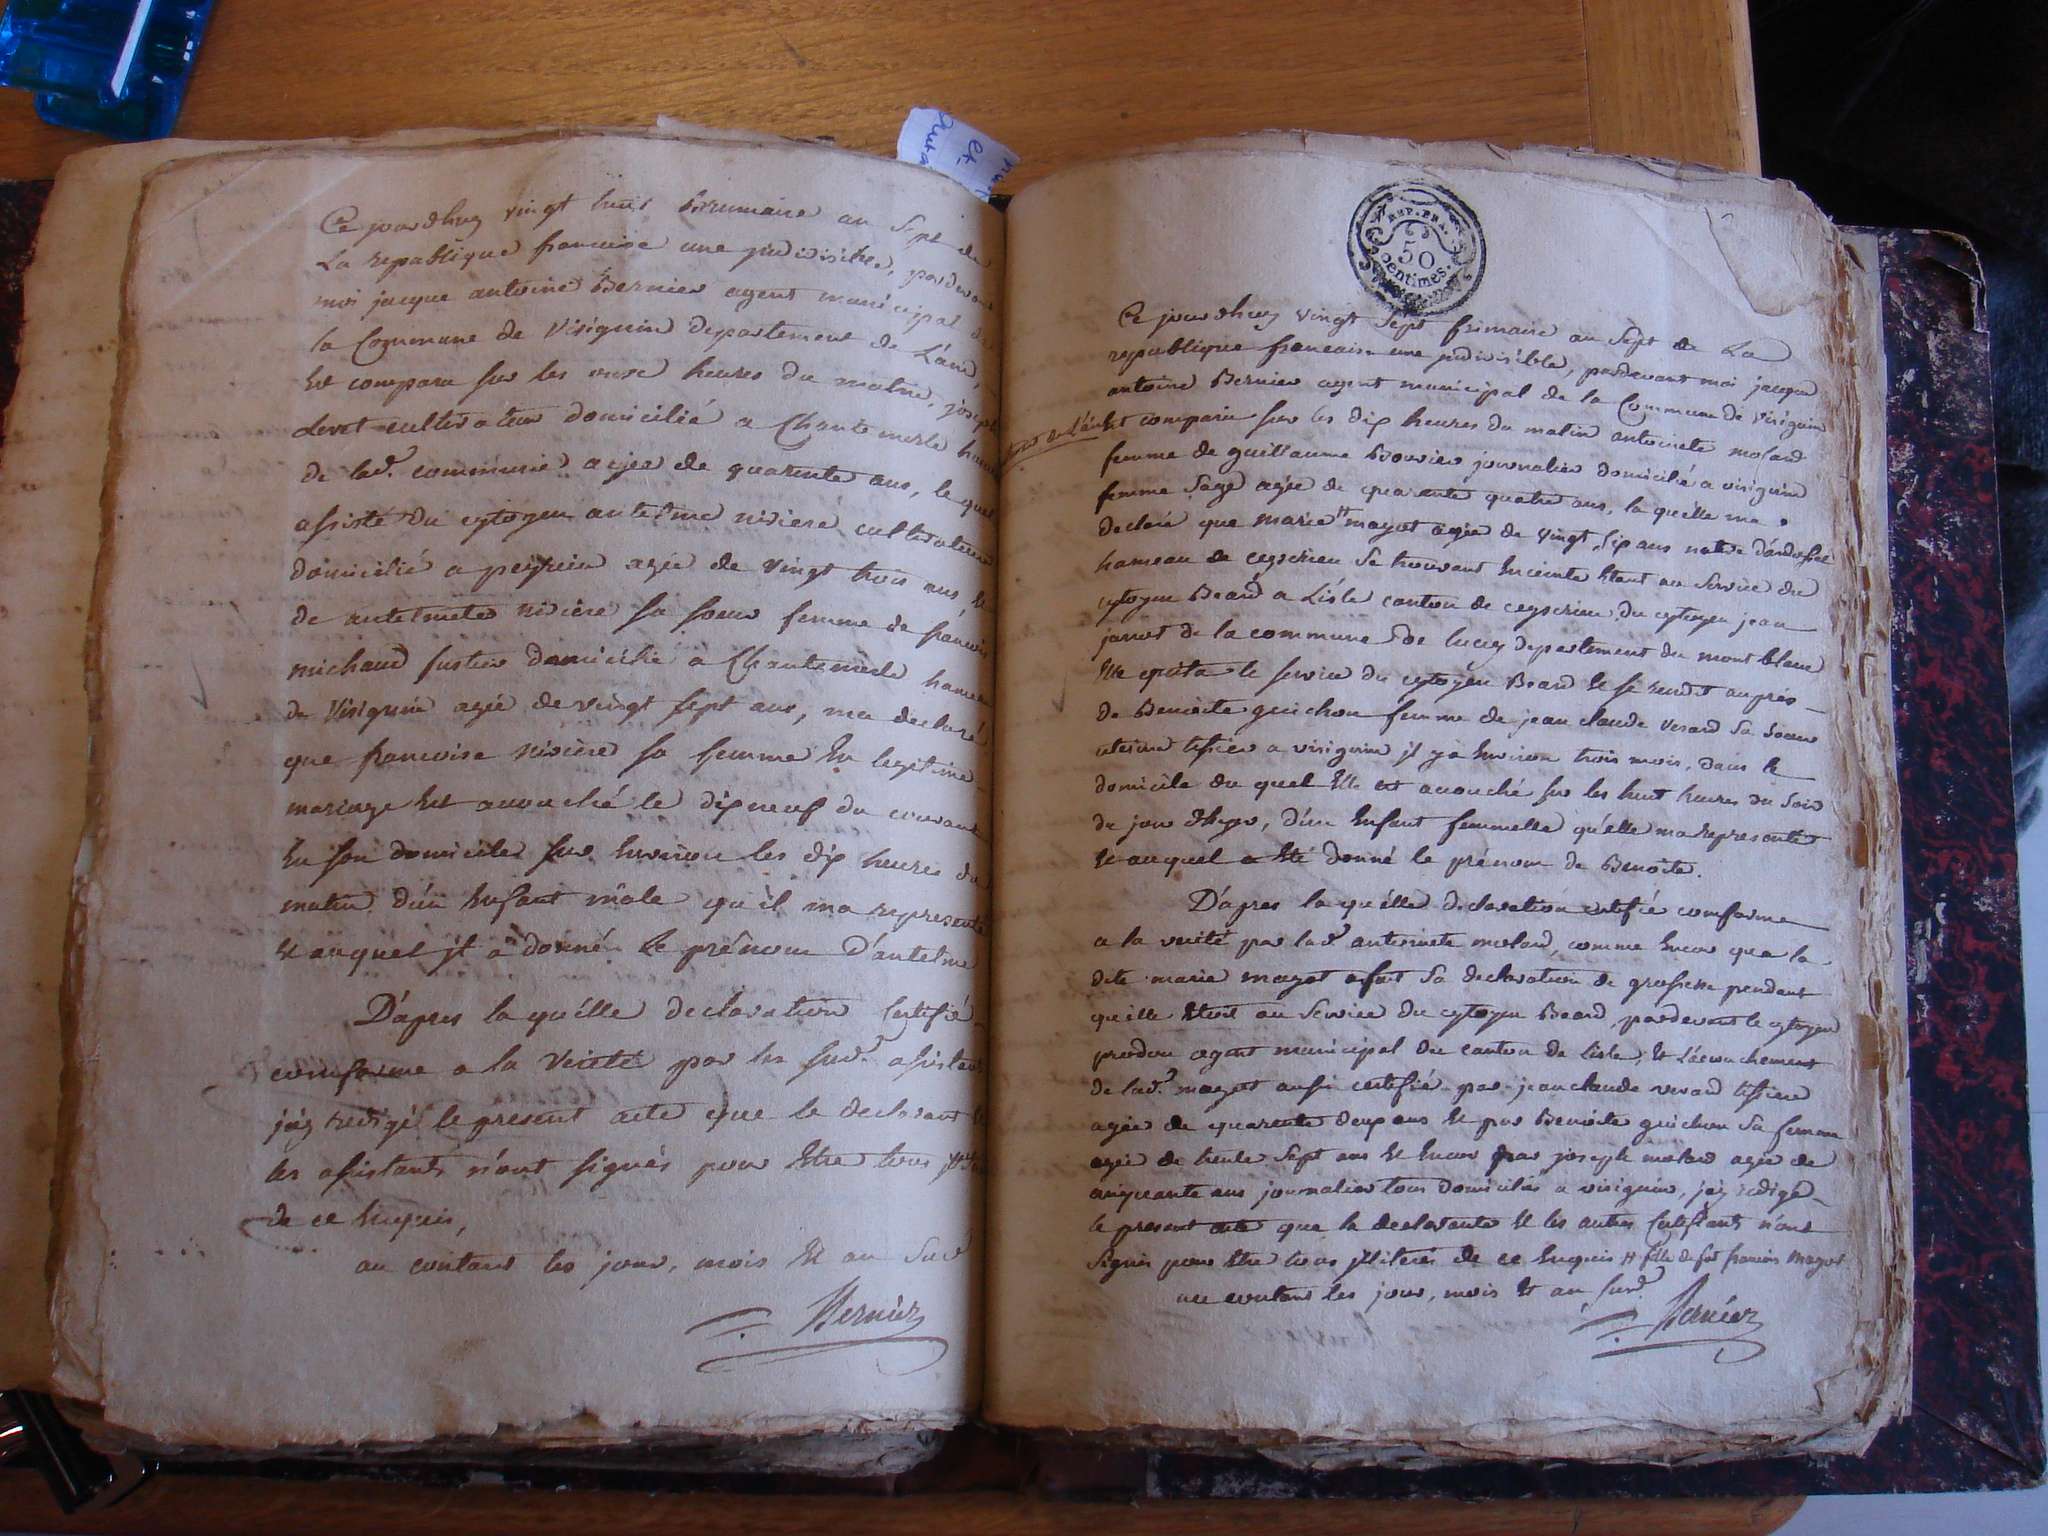 Ce jourdhuy vingt huit Brumaire an Sept de
La republique francoise une jndivisiblee, pardevant
moi jacque antoine Bernier agent municipal de
la Commune de Visignin departement de L'ain,
Est comparu sur les onze heures du matin, joseph
cultivateur domicilié a Chantemerle hameau
de lad.e commune agée de quarente ans, le quel
assisté du cytoyen antelme niviere cultivateur
domicilié a peyrieu agée de vingt trois ans, et
de antelmete nivière sa soeur femme de francois
michaud domicilié a Chantemerle hameau
de Visignin agée de vingt sept ans, ma declaré
que francoise nivière sa femme En legitime
mariage Est acouché le dixneuf du courant
En son domicile sur Environ les dix heures du
matin d'un Enfant mâle qu'il ma representé
Et auquel jl a donné Le prénom D'antelme
D'apres la quélle declaration Certifié
conforme a la Verité par les sud.s assistants
jáy redigé le present acte que le declarant et
les assistants n'ont signés pour Etre tous jlliterés
de ce Enquis,
au contant les jour, mois Et an sud.
Bernier
et
REP. FRA.
50
Centimes.
Ce jourdhuy vingt Sept frimaire an Sept de La
republique francaise une jndivisible, pardevant moi jacque
antoine Bernier agent municipal de la Commune de visignin
de l'ain Est comparue sur les dix heures du matin antoinete molard
femme de guillaume Bouvier journalier domicilié a visignin
femme Sage agée de quarante quatre ans, la quélle ma
declaré que marie # mayot agée de vingt six ans native
hameau de ceyserieu Se trouvant Enceinte Etant au Service du
cytoyen Beard a Lisle canton de ceyserieu du cytoyen jean
de la commune de lucey departement du mont blanc
Elle quita le service du cytoyen Beard Et se rendit auprés
de Benoite guichon femme de jean claude verard Sa Soeur
uterine tissier a visignin jl y a Environ trois mois, dans le
domicile du quel Elle est acouché sur les huit heures du Soir
du jour d'hyer, d'un Enfant femmelle qu'elle ma representée
Et auquel a Eté donné le prénom de Benoite.
D'apres la quélle declaration certifié comforme
a la verité par lad.e antoinete molard, comme Encor que la
dite marie mayot a fait Sa declaration de grossesse pendant
qu'elle Etoit au Service du cytoyen Beard, pardevant le cytoyen
prodon agent municipal du canton de Lisle, Et L'ecouchement
de lad.e mayot aussi certifié par jean claude verard tissier
agée de quarente deux ans Et par Benoite guichon Sa femme
agée de trente Sept ans Et Encor par joseph molard agée de
cinquante ans journalier tous domiciliés a visignin, jáy redigé
le present acte que la declarante Et les autres Certifiants n'ont
Signés pour Etre tous jlliterés de ce Enquis # fille de feu francois Mayot
au contant les jour, mois Et an sud.
Bernier